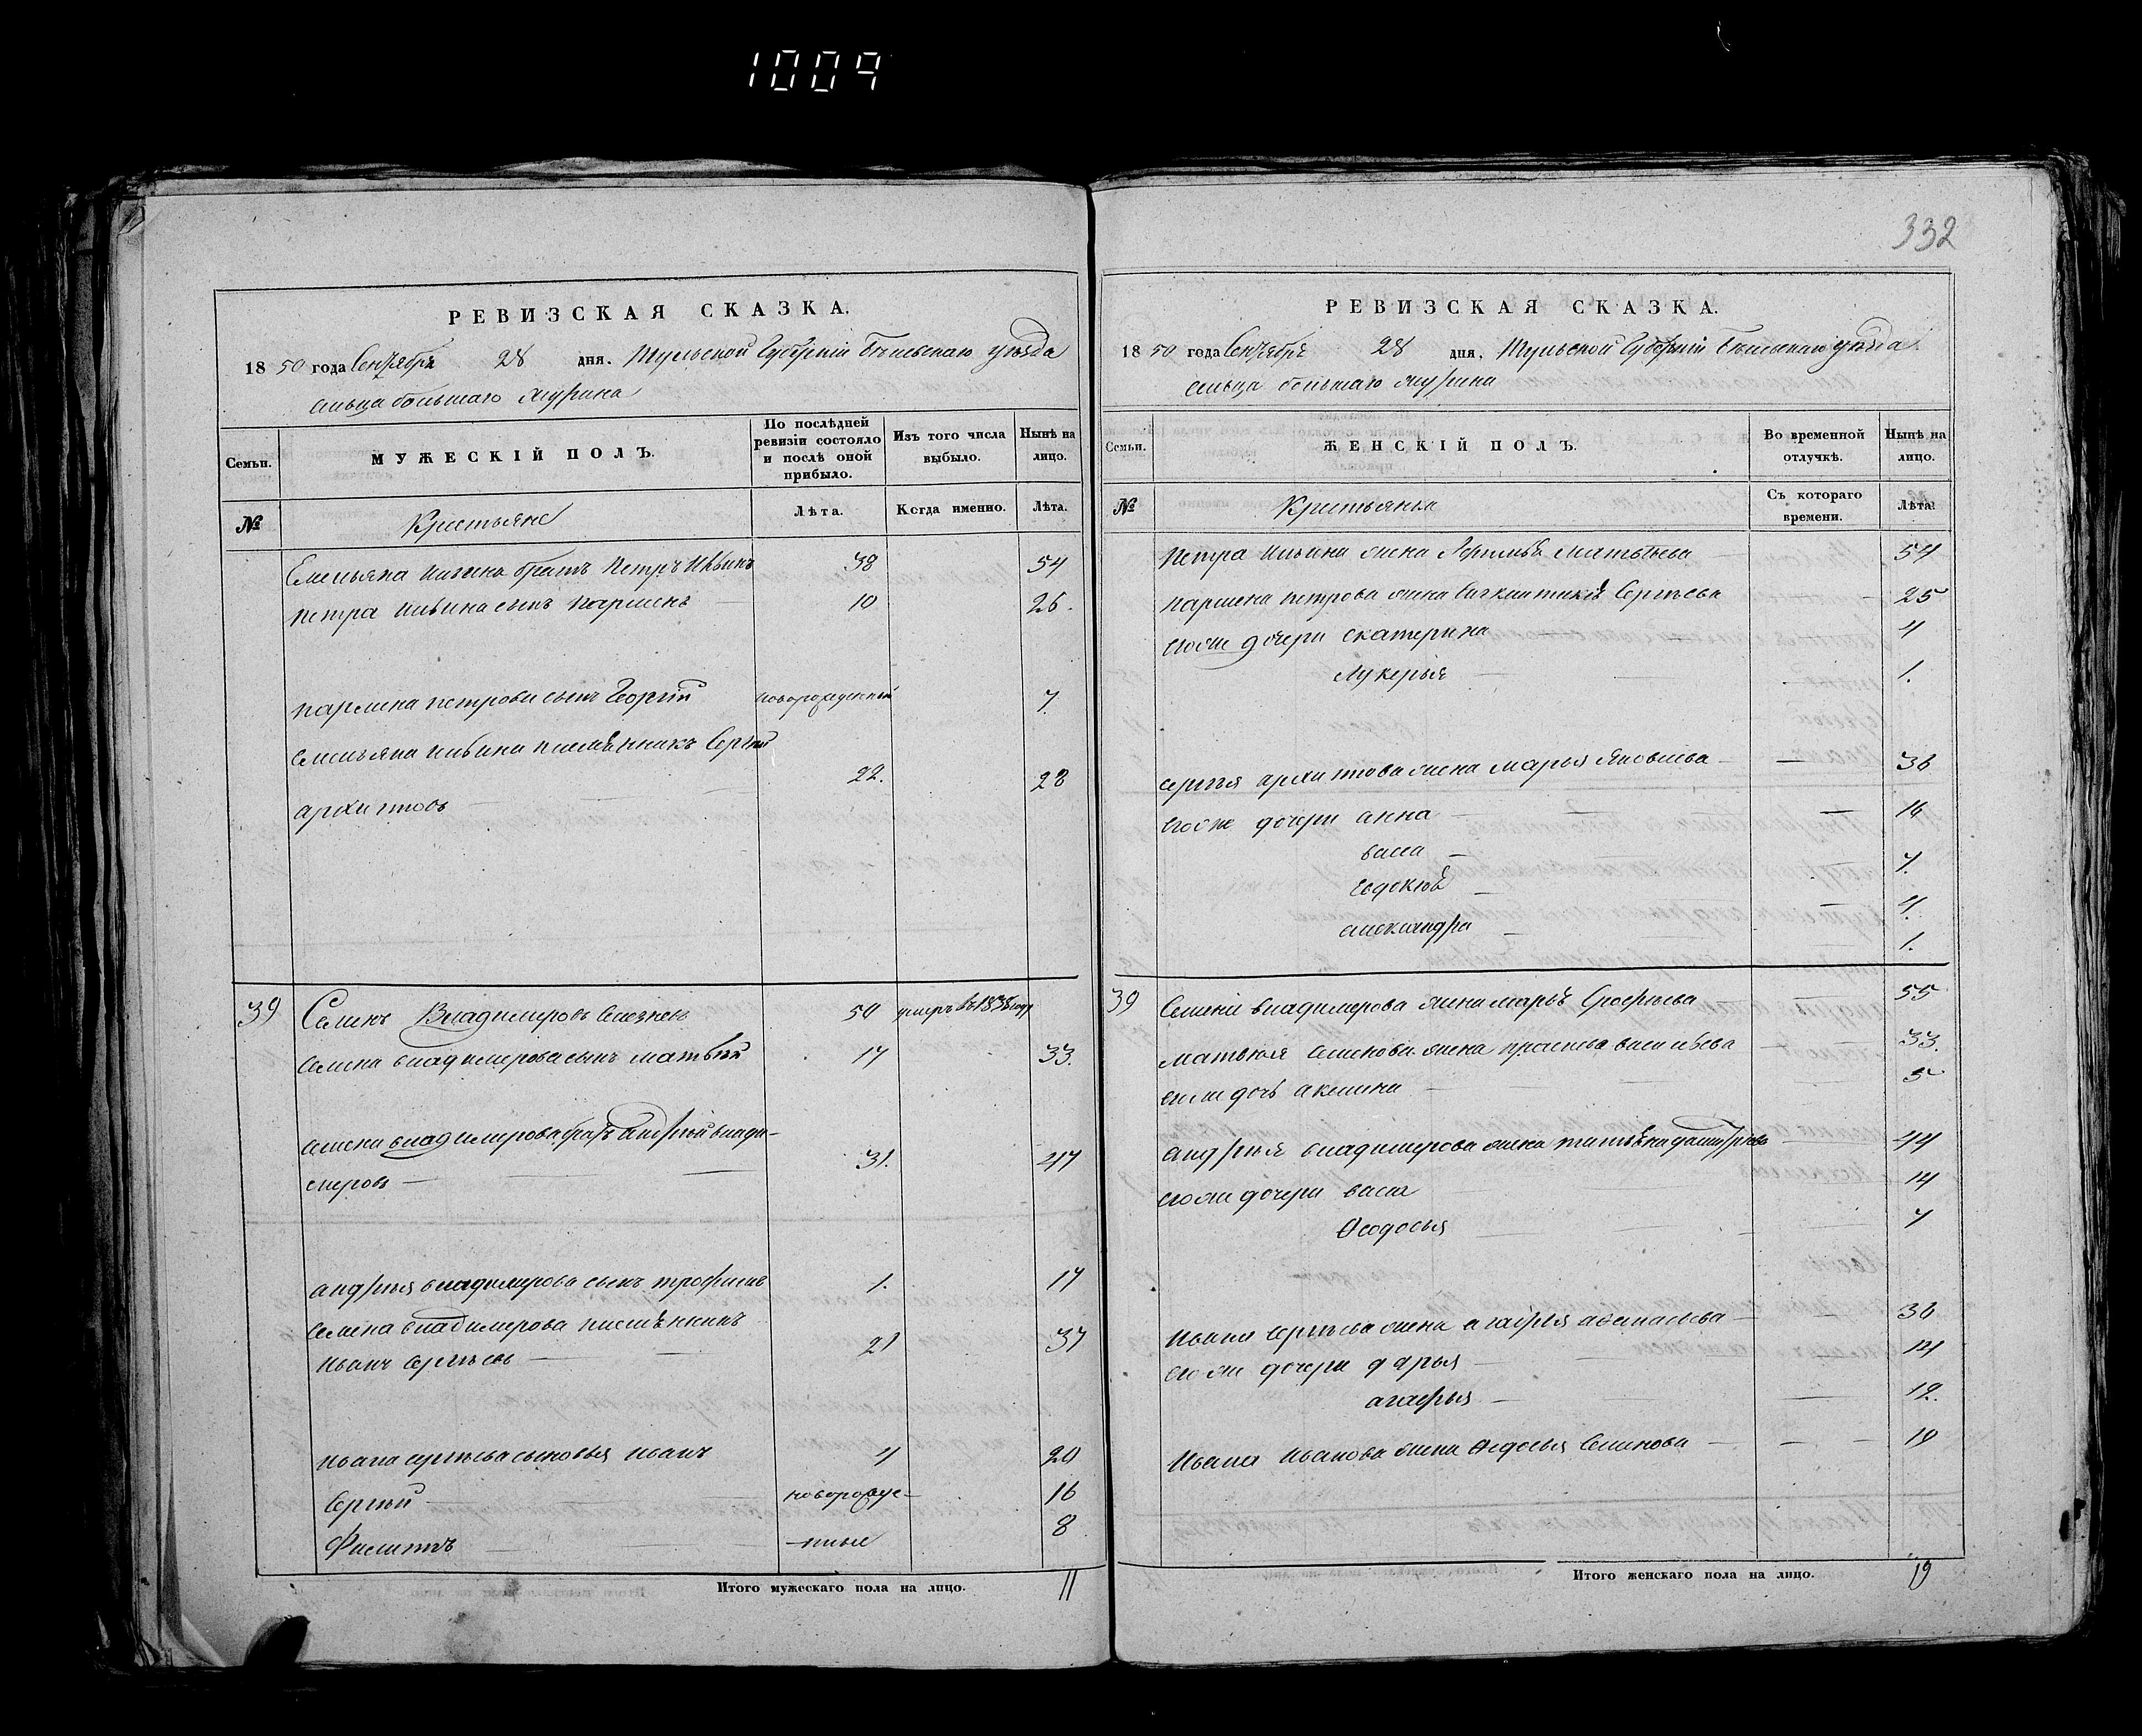 1009
332
РЕВИЗСКАЯ СКАЗКА.
1850 года Сентября 28 дня. Тульской Губерніи Бѣлевскаго уѣзда
сельца большаго
Семьи.
МУЖЕСКІЙ ПОЛЪ.
По послѣдней ревизіи состояло и послѣ оной прибыло.
Изъ того числа выбыло.
Нынѣ на лицо.
№
Крестьяне
Лѣта.
Когда именно.
Лѣта.
Емельяна Ильина братъ Петръ Ильинъ 38 54
Петра Ильина сынъ Парменъ 10 26.
Пармена петрова сынъ Георгій новорожденный 7.
Емельяна Ильина племѣнникъ Сергѣй
архиповъ 22. 28
39 Семенъ Владимеровъ 50 умеръ въ 1838 году
Семена владимерова сынъ матвѣй 17 33.
Семена владимерова братъ Андрѣй влади-
меровъ 31. 47
андрѣя владимерова сынъ трофимъ 1. 17
Семена владимерова племѣнникъ
Иванъ Сергѣевъ 21 37
Ивана сергѣева сыновья иванъ 4 20
Сергѣй новорожде- 16
Филиппъ -нные 8
Итого мужескаго пола на лицо. 11
РЕВИЗСКАЯ СКАЗКА.
1850 года Сентября 28 дня, Тульской Губерніи Бѣлевскаго уѣзда
сельца большаго
Семьи.
ЖЕНСКІЙ ПОЛЪ.
Во временной отлучкѣ.
Нынѣ на лицо.
№
Крестьянки
Съ котораго времени.
Лѣта.
Петра Ильина жена Матвѣева 54
Пармена петрова жена Сергѣева 25
Егоже дочери екатерина 4
Лукерья 1.
Сергѣя архипова жена марья Яковлева 36
Егоже дочери анна 16
васса 7.
евдокія 4.
александра 1.
39 Семена владимерова жена марья Ерофѣева 55
Матвѣя Семенова жена прасковья васильева 33.
его же дочь акелина 5
андрѣя владимерова жена татьяна дмитріева 44
егоже дочери васса 14
Ѳеодосья 7
Ивана Сергѣева жена агафья аѳанасьева 36
его же дочери дарья 14
агафья 12.
Ивана Иванова жена Ѳедосья Семенова 19
Итого женскаго пола на лицо. 19